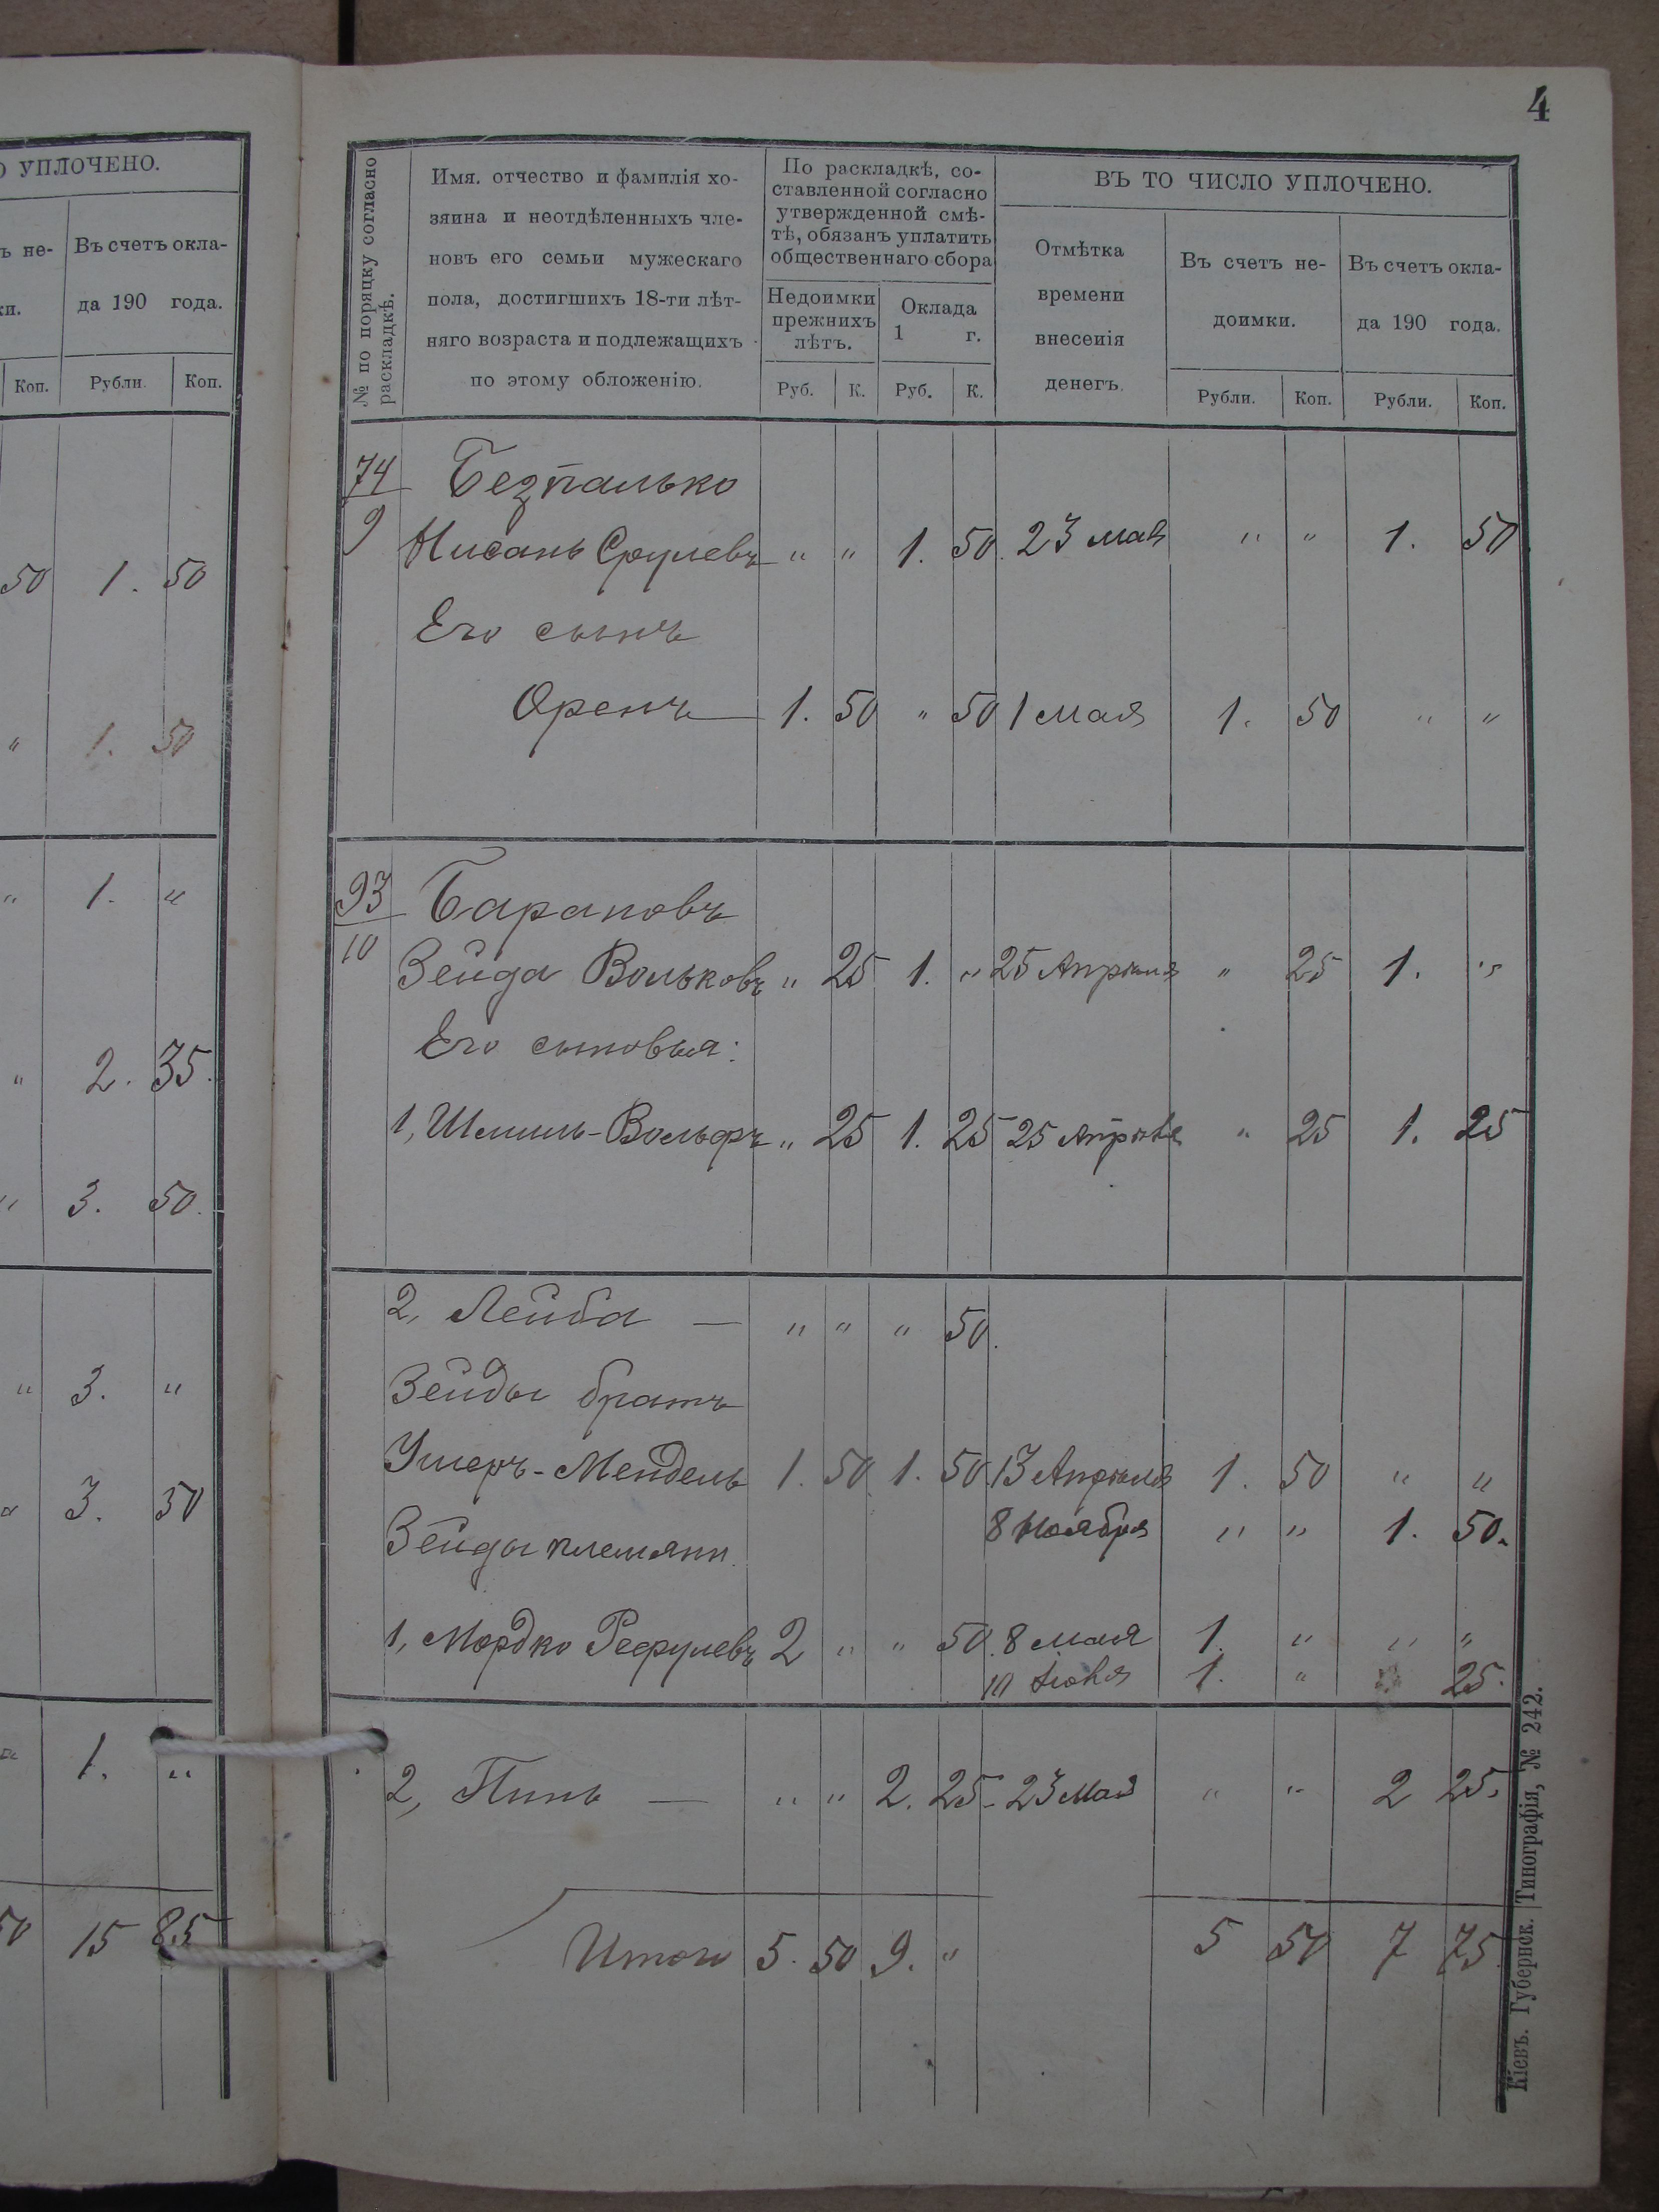 О УПЛОЧЕНО.
ъ не- Въ счетъ окла-
ки. да 190 года.
Коп. Рубли. Коп.
50 1. 50
" 1. 50
" 1. "
" 2. 35.
" 3. 50.
" 3. "
" 3. 50
" 1. "
50 15 85
4
№ по поряцку согласно раскладкѣ.
Имя. отчество и фамилія хо-
зяина и неотдѣленныхъ чле-
новъ его семьи мужескаго
пола, достигшихъ 18-ти лѣт-
няго возраста и подлежащихъ
по этому обложенію.
По раскладкѣ, со-
ставленной согласно
утвержденной смѣ-
тѣ, обязанъ уплатить
общественнаго сбора
Недоимки
прежнихъ
лѣтъ.
Оклада
1 г.
Руб. К. Руб. К.
ВЪ ТО ЧИСЛО УПЛОЧЕНО.
Отмѣтка
времени
внесенія
денегъ.
Въ счетъ не-
доимки.
Въ счетъ окла-
да 190 года.
Рубли. Коп. Рубли. Коп.
74 Безпалько
9 Нисань Срулевъ " " 1. 50. 23 мая " " 1. 50
Его сынъ
Оренъ 1. 50 " 50 1 мая 1. 50 " "
93 Барановъ
10 Зейда Вольковъ " 25 1. " 25 Апрѣля " 25 1. "
Его сыновья:
1, Шмиль-Вольфъ " 25 1. 25 25 Апрѣля " 25 1. 25
2, Лейба — " " " 50.
Зейды братъ
Ушеръ-Мендель 1. 50 1. 50 13 Апрѣля 1. 50 " "
8 Ноября " " 1. 50.
Зейды племянн.
1, Мордко Рефулевъ 2 " " 50. 8 мая 1. " " "
10 Іюня 1. " 25.
2, Пинь — " " 2. 25 - 23 Мая " " 2 25.
Итого 5. 50 9. " 5 50 7 75
Кіевъ. Губернск. Типографія, № 242.